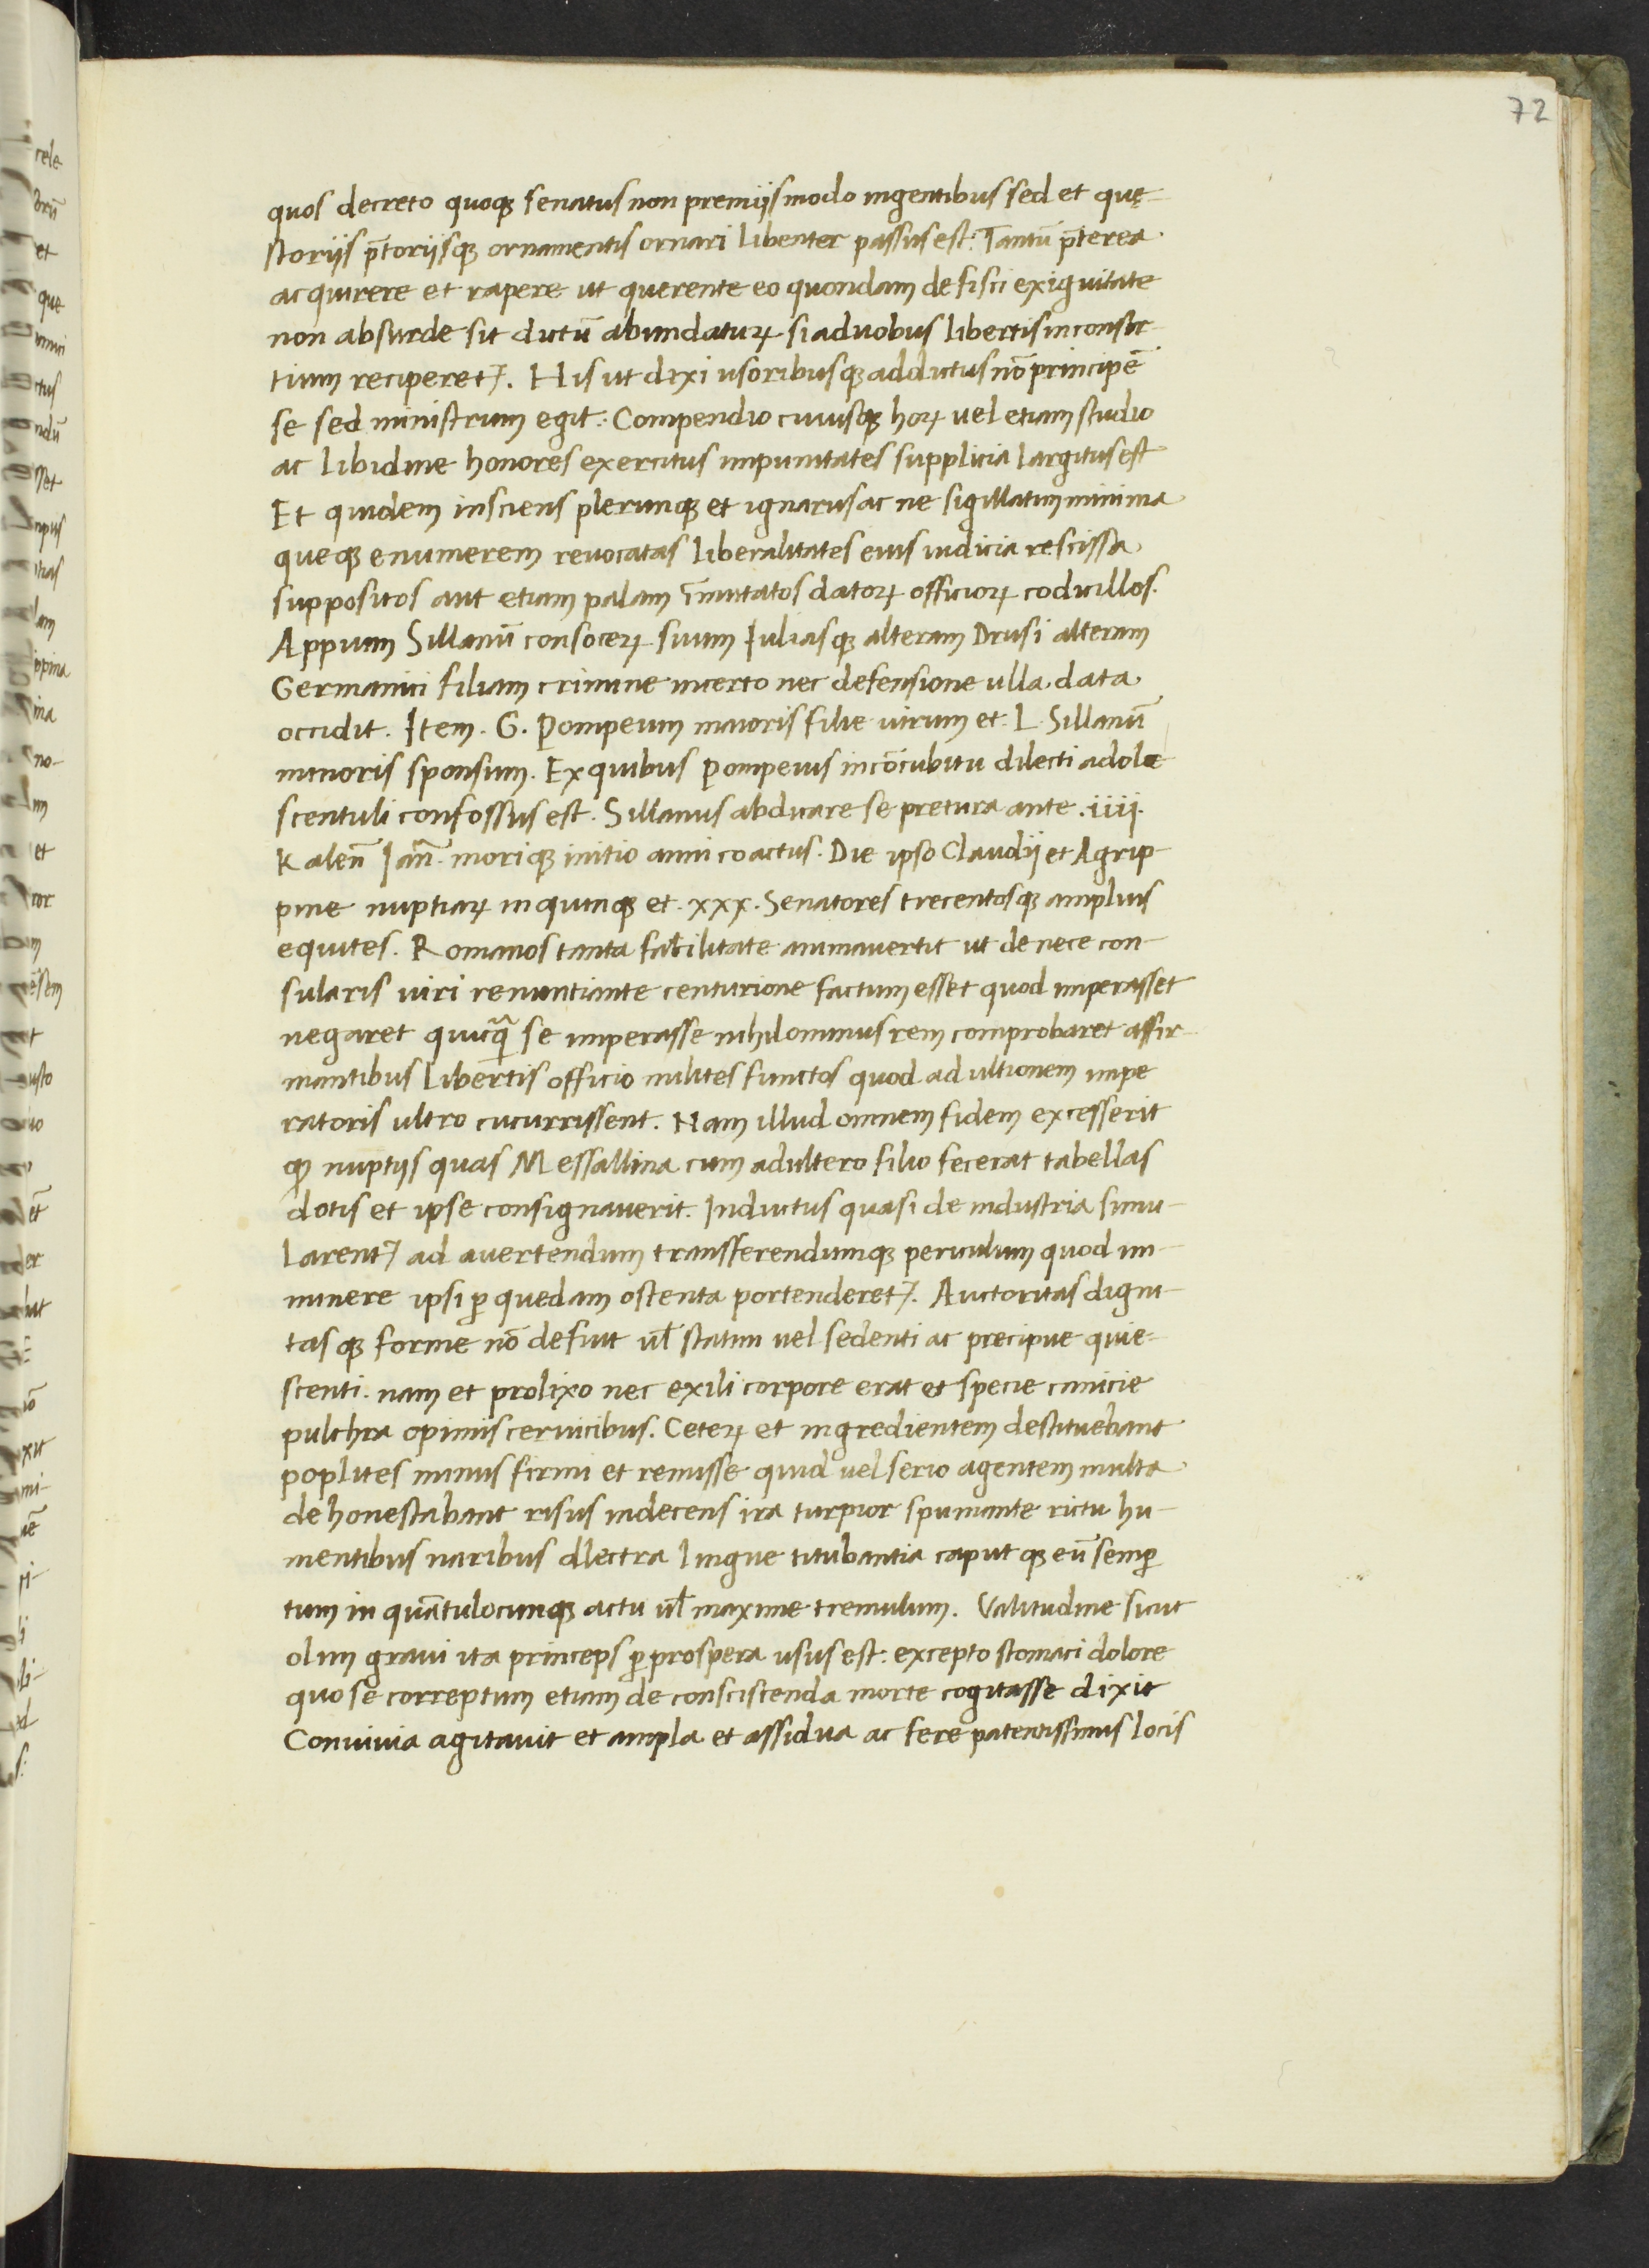 72
quos decreto quoq; senatus non premijs modo ingentibus sed et quę-
storijs p̄torijsq; ornamentis ornari libenter passus est: Tantū p̄terea
acquirere et rapere ut querente eo quondam de fisci exiguitate
non absurde sit dictū abundaturꝝ si a duobus libertis in consor-
tium reciperet᷑. His ut dixi usoribusq; addictus nō principē
se sed ministrum egit: Compendio cuiusq; horꝝ vel etiam studio
ac libidine honores exercitus impunitates supplicia largitus est
Et quidem insciens plerunq; et ignarus ac ne sigillatim minima
queq; enumerem revocatas liberalitates eius iudicia rescissa
suppositos aut etiam palam īmutatos datorꝝ officiorꝝ codicillos.
Appium Sillanū consocerꝝ suum Iuliasq; alteram Drusi alteram
Germanici filiam crimine incerto nec defensione ulla data
occidit. Item. G. Pompeium maioris filie virum et. L. Sillanū
minoris sponsum. Ex quibus Pompeius in cōcubitu dilecti adole
scentuli confossus est. Sillanus abdicare se pretura ante .iiij.
Kaleñ Iañ. moriq; initio anni coactus. Die ipso Claudij et Agrip-
pine nuptiarꝝ in quinq; et. xxx. Senatores trecentosq; amplius
equites. Romanos tanta facilitate animavertit ut de nece con-
sularis viri renuntiante centurione factum esset quod imperasset
negaret quicq̄ se imperasse nihilominus rem comprobaret affir-
mantibus libertis officio milites functos quod ad ultionem impe
ratoris ultro cucurrissent. Nam illud omnem fidem excesserit
qꝫ nuptijs quas Messallina cum adultero filio fecerat tabellas
dotis et ipse consignaverit. Inductus quasi de industria simu-
larent᷑ ad avertendum transferendumq; periculum quod im-
minere ipsi ꝑ quedam ostenta portenderet᷑. Auctoritas digni-
tasq; forme nō defuit ul̄ statim vel sedenti ac precipue quie-
scenti. nam et prolixo nec exili corpore erat et specie canicie
pulchra opimis cervicibus. Ceterꝝ et ingredientem destituebant
poplites minus firmi et remisse quid vel serio agentem multa
dehonestabant risus indecens ira turpior spumante rictu hu-
mentibus naribus dlectra lingue titubantia caputq; eū semꝑ
tum in quātulocunq; actu ul̄ maxime tremulum. Valitudine sicut
olim gravi ita princeps ꝑprospera usus est: excepto stomaci dolore
quo se correptum etiam de consciscenda morte cogitasse dixit
Convivia agitavit et ampla et assidua ac fere patentissimis locis